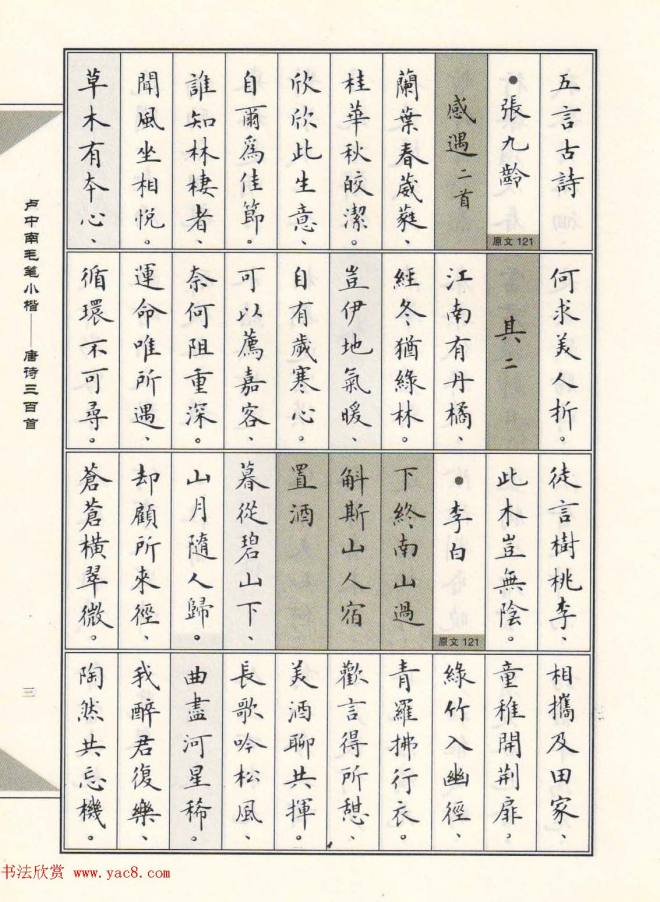 五言古詩
●張九齡
原文121
感遇二首
蘭葉春葳蕤、
桂華秋皎潔。
欣欣此生意、
自爾爲佳節。
誰知林棲者、
聞風坐相悅。
草木有本心、
何求美人折。
其二
江南有丹橘、
經冬猶綠林。
豈伊地氣暖、
自有歲寒心。
可以薦嘉客、
奈何阻重深。
運命唯所遇、
循環不可尋。
徒言樹桃李、
此木豈無陰。
●李白
原文121
下終南山過
斛斯山人宿
置酒
暮從碧山下、
山月隨人歸。
却顧所來徑、
蒼蒼橫翠微。
相攜及田家、
童稚開荆扉,
綠竹入幽徑、
青羅拂行衣。
歡言得所憩、
美酒聊共揮。
長歌吟松風、
曲盡河星稀。
我醉君復樂、
陶然共忘機。
卢中南毛笔小楷——唐诗三百首
三
书法欣赏 www.yac8.com